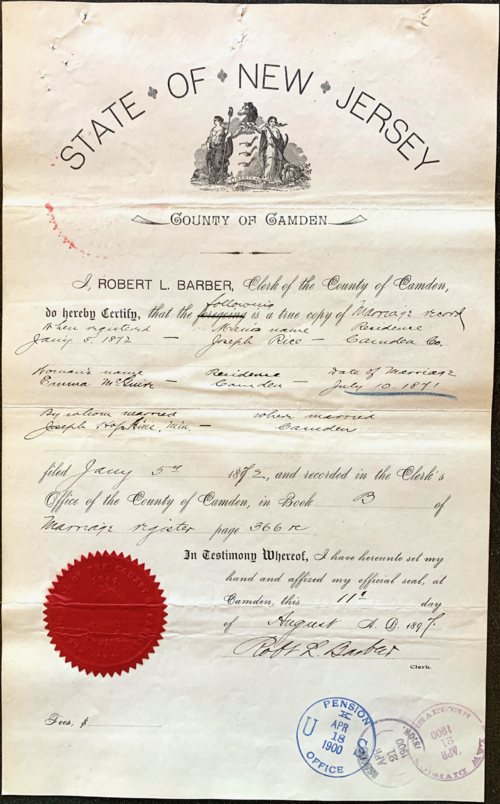 STATE OF NEW JERSEY
COUNTY OF CAMDEN
I, ROBERT L. BARBER, Clerk of the County of Camden,
following
do hereby Certify, that the foregoing is a true copy of Marriage record
When registered Man's name Residence
Jany 5, 1872 — Joseph Rice — Camden Co.
Woman's name Residence Date of Marriage
Emma — Camden — July 10. 1871
By whom married where married
Joseph Hopkins, Min. — Camden
filed Jany 5th 1872, and recorded in the Clerk's
Office of the County of Camden, in Book B of
Marriage register page 366
In Testimony Whereof, I have hereunto set my
hand and affixed my official seal, at
Camden, this 11th day
of August A. D. 1897.
Robt L. Barber
Clerk.
Fees, $
PENSION
U
K
APR
18
1900
OFFICE
APR
21
1900
LAW
APR
21
1900
DIVISION